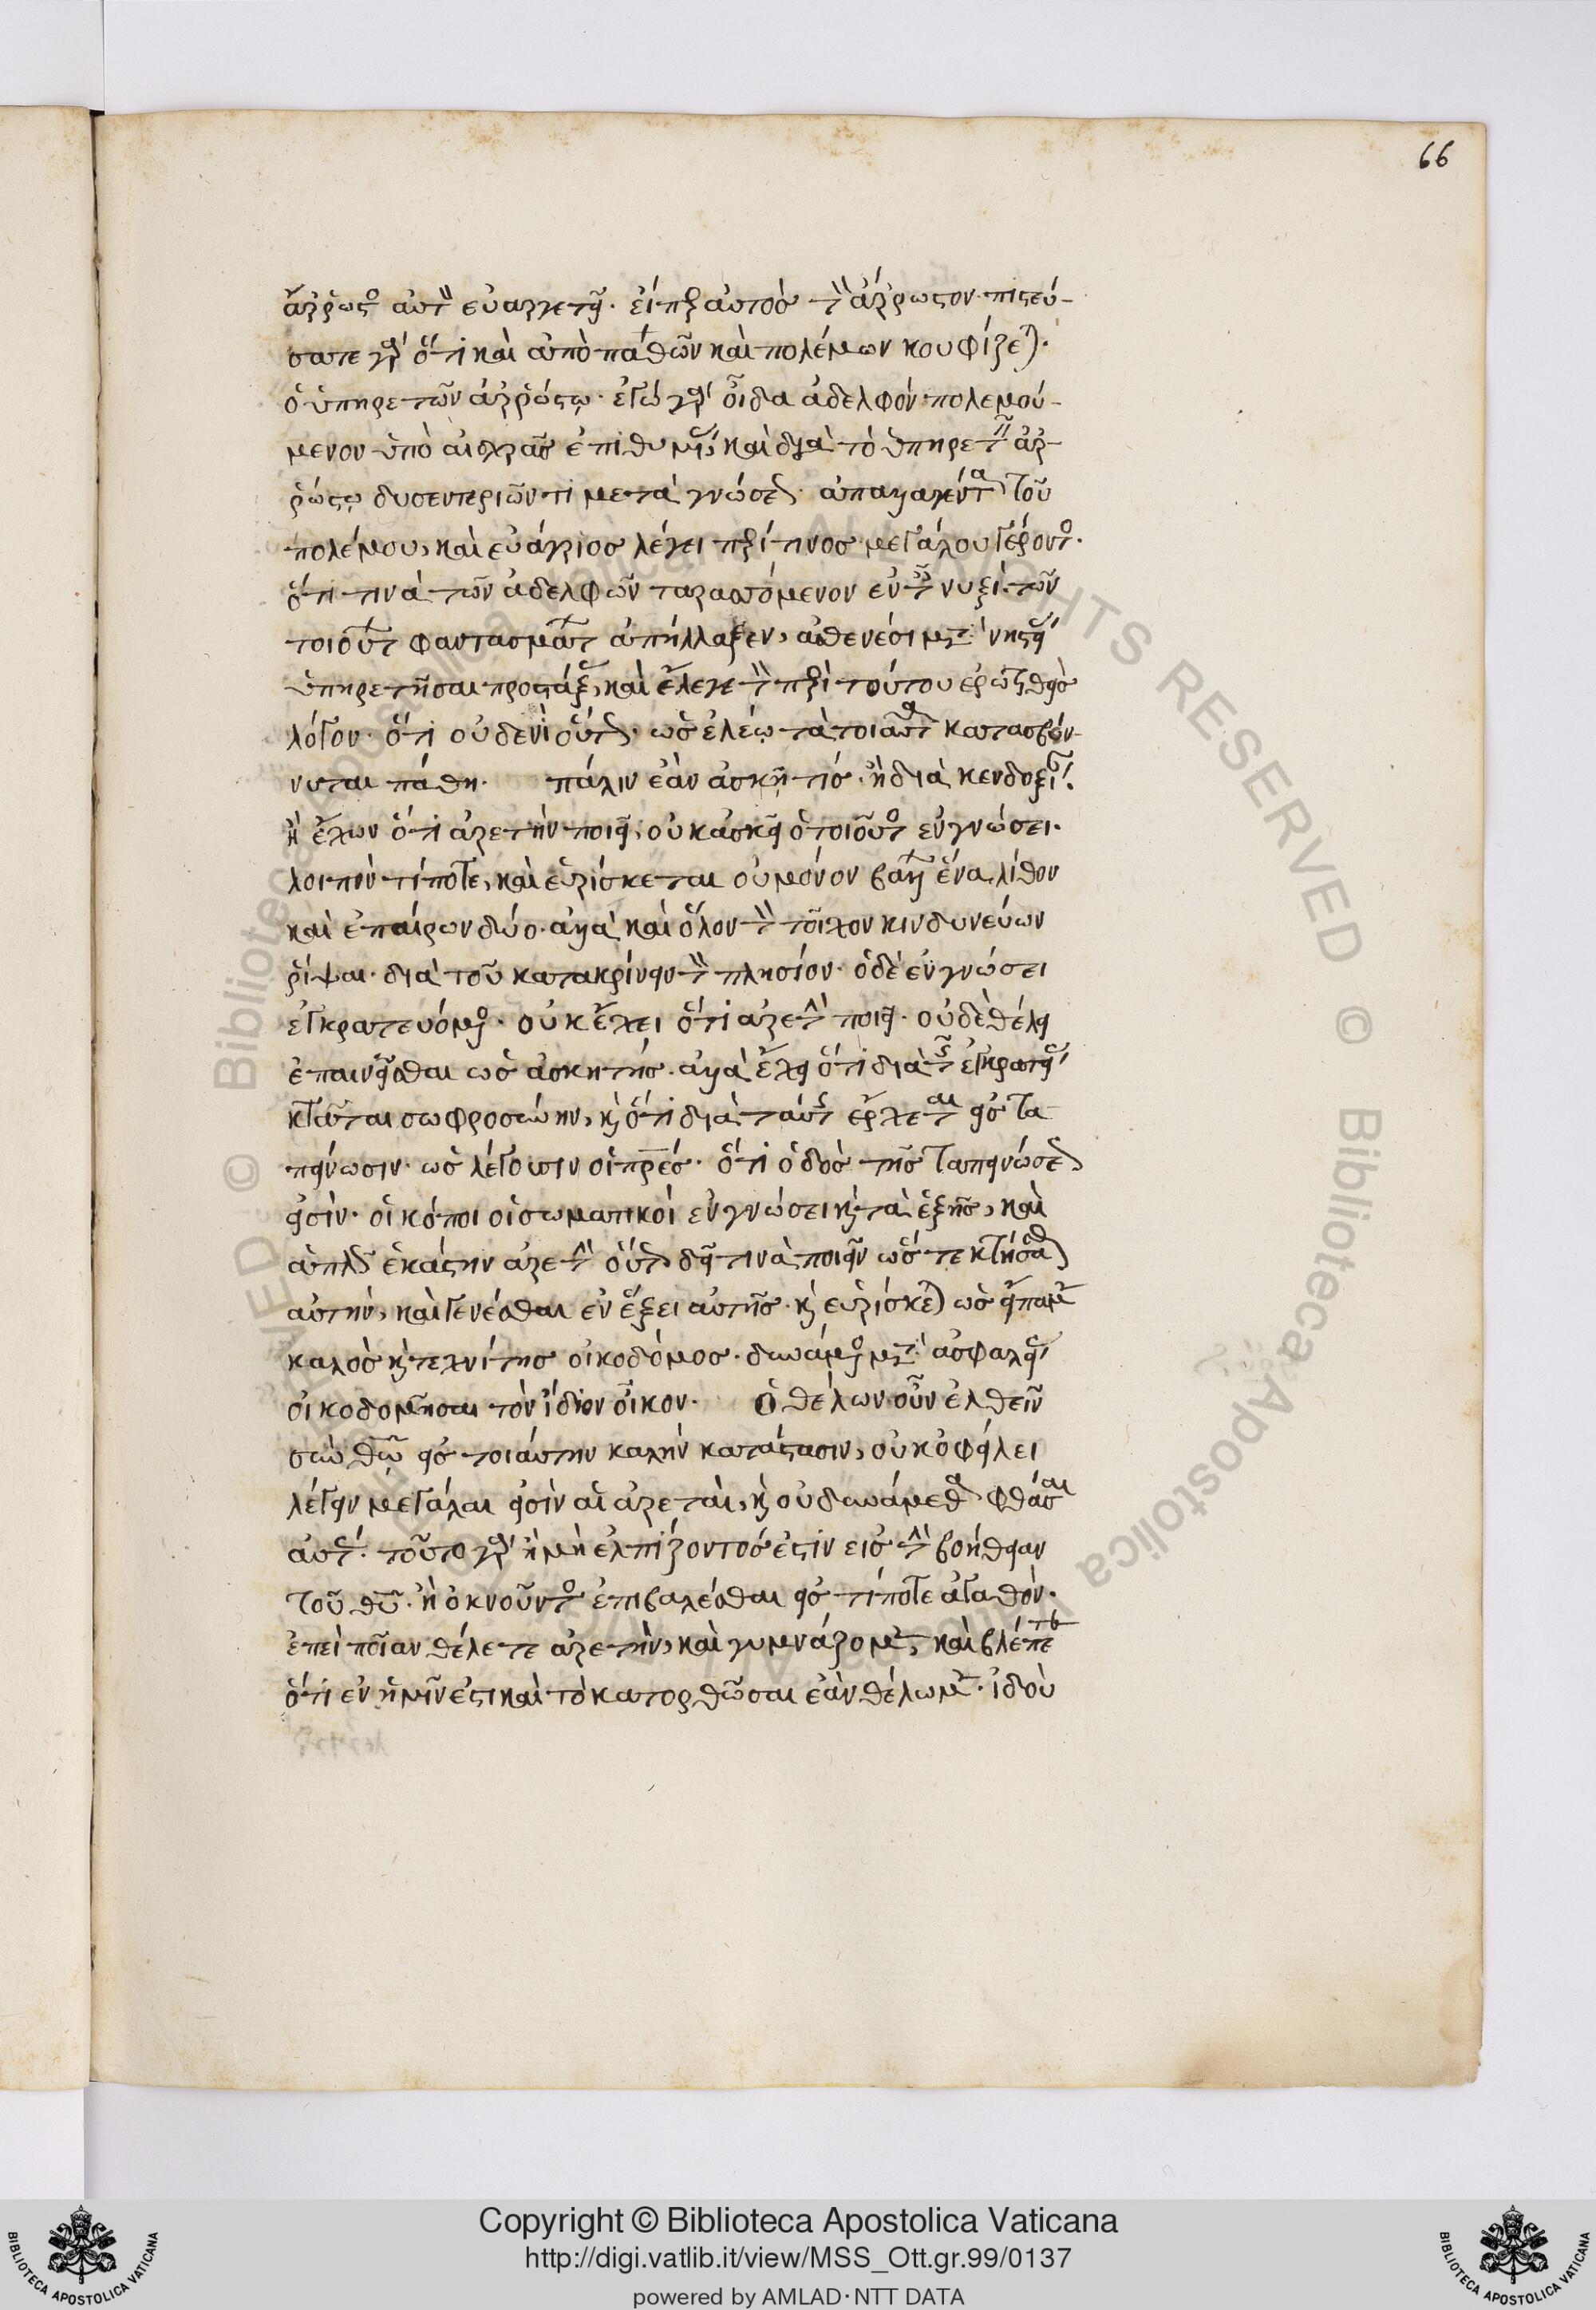 66
ἄρρωστος αὐτὸν εὐεργετεῖ. εἴπερ αὐτὸς τὸν ἄρρωστον. πιστεύ-
σατε γὰρ ὅτι καὶ ἀπὸ παθῶν καὶ πολέμων κουφίζεται.
ὁ ὑπηρετῶν ἀρρώστῳ. ἐγὼ γὰρ οἶδα ἀδελφὸν πολεμού-
μενον ὑπὸ αἰσχρᾶς ἐπιθυμίας, καὶ διὰ τὸ ὑπηρετῆσαι ἀρ-
ρώστῳ δυσεντεριῶντι μετὰ γνώσεως ἀπαλλαγέντα τοῦ
πολέμου, καὶ εὐάγριος λέγει περί τινος μεγάλου γέροντος.
ὅτι τινὰ τῶν ἀδελφῶν ταρασσόμενον ἐν ταῖς νυξὶ τῶν
τοιούτων φαντασμάτων ἀπήλλαξεν, ἀσθενέσι μετὰ νηστείας
ὑπηρετῆσαι προστάξας, καὶ ἔλεγε τὸν περὶ τούτου ἐρωτηθεὶς
λόγον. ὅτι οὐδενὶ οὕτως. ὡς ἐλέῳ τὰ τοιαῦτα κατασβέν-
νυται πάθη. πάλιν ἐὰν ἀσκῇ τίς. ἢ διὰ κενδοξίαν.
ἢ ἔχων ὅτι ἀρετὴν ποιεῖ, οὐκ ἀσκεῖ ὁ τοιοῦτος ἐν γνώσει.
λοιπὸν τίποτε, καὶ εὑρίσκεται οὐ μόνον βάλλων ἕνα λίθον
καὶ ἐπαίρων δύο. ἀλλὰ καὶ ὅλον τὸν τοῖχον κινδυνεύων
ῥίψαι. διὰ τοῦ κατακρίνειν τὸν πλησίον. ὁ δὲ ἐν γνώσει
ἐγκρατευόμενος. οὐκ ἔχει ὅτι ἀρετὴν ποιεῖ. οὐδὲ θέλει
ἐπαινεῖσθαι ὡς ἀσκητής. ἀλλὰ ἔχει ὅτι διὰ τῆς ἐγκρατείας
κτᾶται σωφροσύνην, καὶ ὅτι διὰ ταύτης ἔρχεται εἰς τα
πείνωσιν. ὡς λέγουσιν οἱ πρες. ὅτι ὁδὸς τῆς ταπεινώσεως
εἰσὶν. οἱ κόποι οἱ σωματικοὶ ἐν γνώσει καὶ τὰ ἑξῆς, καὶ
ἁπλῶς ἑκάστην ἀρετὴν οὕτως δεῖ τινὰ ποιεῖν ὥστε κτήσασθαι
αὐτήν, καὶ γενέσθαι ἐν ἕξει αὐτῆς. καὶ εὑρίσκεται ὡς εἴπαμεν
καλὸς καὶ τεχνίτης οἰκοδόμος. δυνάμενος μετὰ ἀσφαλείας
οἰκοδομῆσαι τὸν ἴδιον οἶκον. Ὁ θέλων οὖν ἐλθεῖν
σὺν θῶ εἰς τοιαύτην καλὴν κατάστασιν, οὐκ ὀφείλει
λέγειν μεγάλαι εἰσὶν αἱ ἀρεταὶ, καὶ οὐ δυνάμεθα φθάσαι
αὐτάς. τοῦτο γὰρ ἢ μὴ ἐλπίζοντός ἐστιν εἰς τὴν βοήθειαν
τοῦ θῦ. ἢ ὀκνοῦντος ἐπιβαλέσθαι εἰς τίποτε ἀγαθόν.
ἐπεὶ ποῖαν θέλετε ἀρετὴν, καὶ γυμνάζομεν, καὶ βλέπετε
ὅτι ἐν ἡμῖν ἐστι καὶ τὸ κατορθῶσαι ἐὰν θέλωμεν. ἰδοὺ
Copyright © Biblioteca Apostolica Vaticana
http://digi.vatlib.it/view/MSS_Ott.gr.99/0137
powered by AMLAD·NTT DATA